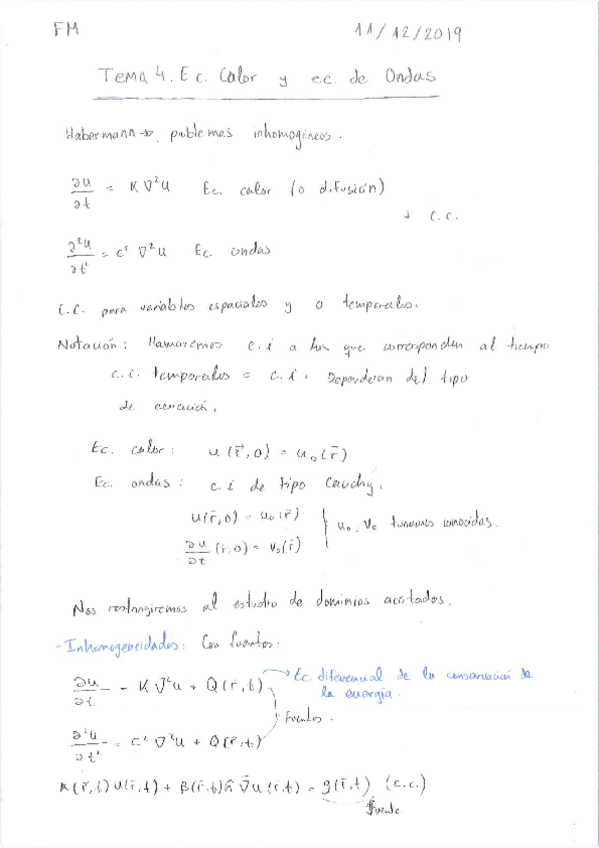 FM 11/12/2019
Tema 4. Ec. Calor y ec. de Ondas
Habermann → problemas inhomogéneos.
∂u/∂t = K ∇²u Ec. calor (o difusión)
+ C.C.
∂²u/∂t² = c² ∇²u Ec. ondas
C.C. para variables espaciales y o temporales.
Notación: llamaremos c.i a las que corresponden al tiempo
c.c. temporales = c.i. Dependerán del tipo
de ecuación.
Ec. calor: u(r⃗,0) = u₀(r⃗)
Ec. ondas: c.i de tipo Cauchy.
u(r⃗,0) = u₀(r⃗)
∂u/∂t (r⃗,0) = v₀(r⃗) } u₀, v₀ funciones conocidas.
Nos restringiremos al estudio de dominios acotados.
- Inhomogeneidades: Con fuentes:
∂u/∂t = K ∇²u + Q(r⃗,t) → Ec diferencial de la conservación de
la energía.
Fuentes.
∂²u/∂t² = c² ∇²u + Q(r⃗,t)
α(r⃗,t)u(r⃗,t) + β(r⃗,t) n̂ ∇⃗u(r⃗,t) = g(r⃗,t) (c.c.)
fuente